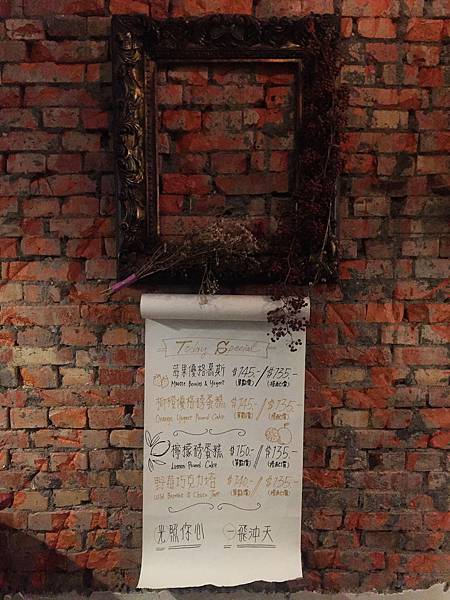 Today Special
莓果優格慕斯 $145.-/$135.-
Mousse Berries & Yogurt (單點價) (搭配價)
柳橙優格磅蛋糕 $145.-/$135
Orange Yogurt Pound Cake (單點價)
檸檬磅蛋糕 $150.-/$135.
Lemon Pound Cake (單點價)
野莓巧克力塔 $140.-/$135
Wild Berries & Choco Tart (單點價)
光照你心 一飛沖天